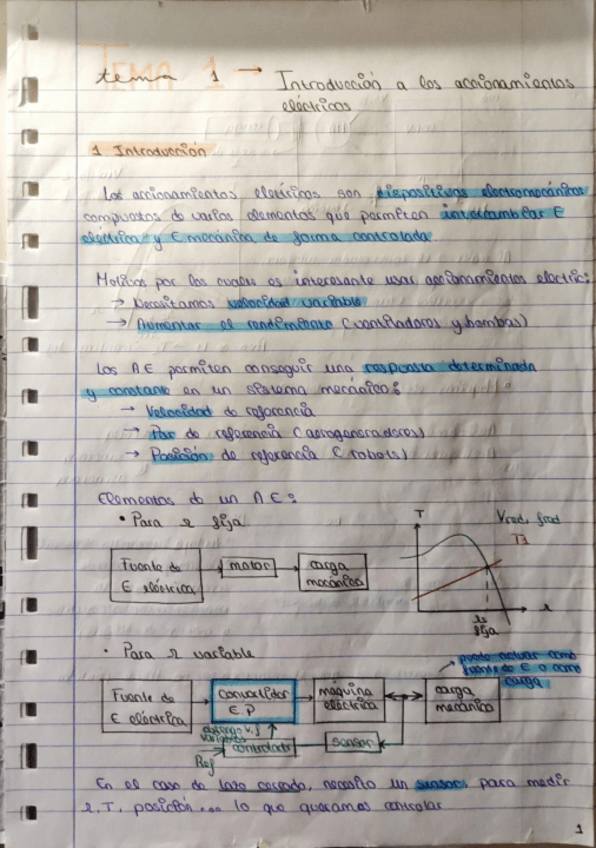 tema 1 → Introducción a los accionamientos
eléctricos
1 Introducción
Los accionamientos eléctricos son dispositivos electromecánicos
compuestos de varios elementos que permiten intercambiar E
eléctrica y E mecánica de forma controlada.
Motivos por los cuales es interesante usar accionamientos electric:
→ Necesitamos velocidad variable
→ Aumentar el rendimiento (ventiladores y bombas)
Los AE permiten conseguir una respuesta determinada
y constante en un sistema mecánico:
→ Velocidad de referencia
→ Par de referencia (aerogeneradores)
→ Posición de referencia (robots)
Elementos de un AE:
• Para Ω fija
Fuente de
E eléctrica
motor
carga
mecánica
T
Vred, fred
Ω
Ω
fija
• Para Ω variable
puede actuar como
fuente de E o como
carga
Fuente de
E eléctrica
convertidor
E.P
máquina
eléctrica
carga
mecánica
obtengo V, f
variables
Ref
controlador
sensor
En el caso de lazo cerrado, necesito un sensor, para medir
Ω, T, posición... lo que queramos controlar
1